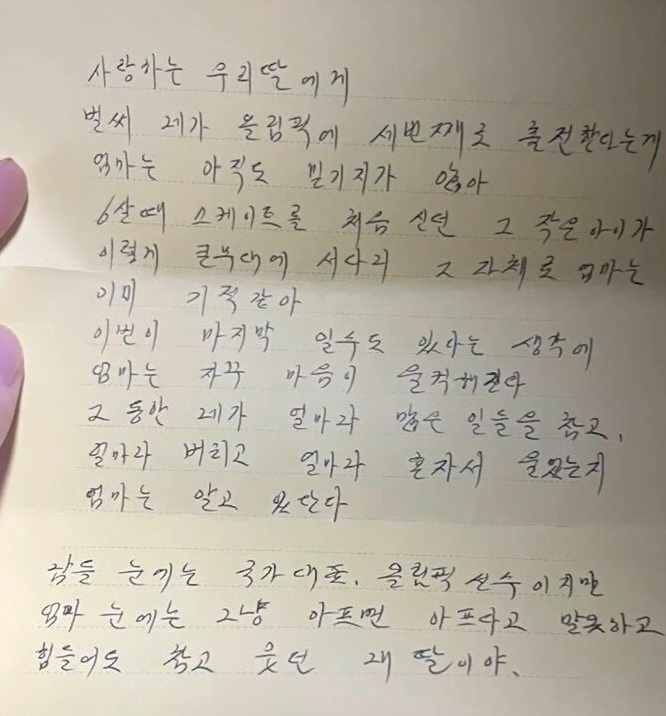 사랑하는 우리딸에게
벌써 레가 올림픽에 세번째로 출전한다는게
엄마는 아직도 믿기지가 않아
6살때 스케이트를 처음 신던 그 작은아이가
이렇게 큰무대에 서다리 그 자체로 엄마는
이미 기적같아
이번이 마지막 일수도 있다는 생각에
엄마는 자꾸 마음이 울컥해진다
그 동안 레가 얼마라 많은 일들을 참고,
얼마라 버리고 얼마라 혼자서 울었는지
엄마는 알고 있단다
감들 눈에는 국가대표, 올림픽 선수이지만
엄마 눈에는 그냥 아프면 아프다고 말못하고
힘들어도 참고 웃던 래 딸이야.